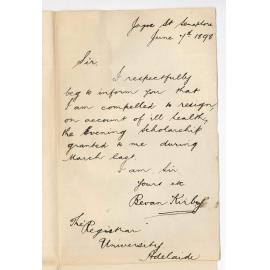 Joyce St Semaphore
June 7th 1898
Sir
I respectfully
beg to inform you that
I am compelled to resign,
on account of ill health,
the Evening Scholarship
granted to me during
March last.
I am Sir
Yours etc
Bevan Kirby
The Registrar
University
Adelaide